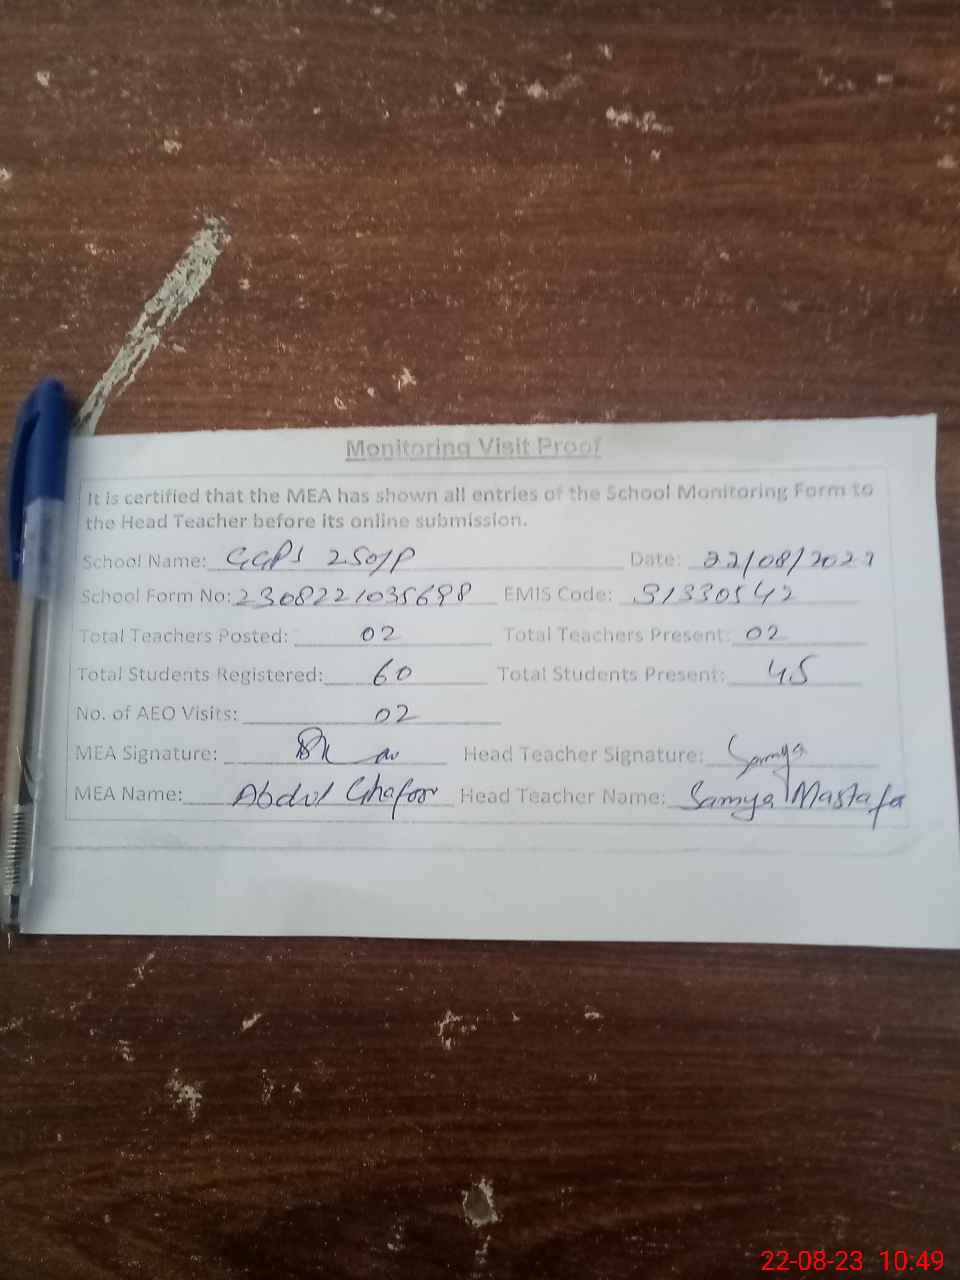 Monitoring Visit Proof
It is certified that the MEA has shown all entries of the School Monitoring Form to
the Head Teacher before its online submission.
School Name: GGPS 250/P Date: 22/08/2023
School Form No: 2308221035698 EMIS Code: 31330542
Total Teachers Posted: 02 Total Teachers Present: 02
Total Students Registered: 60 Total Students Present: 45
No. of AEO Visits: 02
MEA Signature: Head Teacher Signature: Samya
MEA Name: Abdul Ghafoor Head Teacher Name: Samya Mastafa
22-08-23 10:49